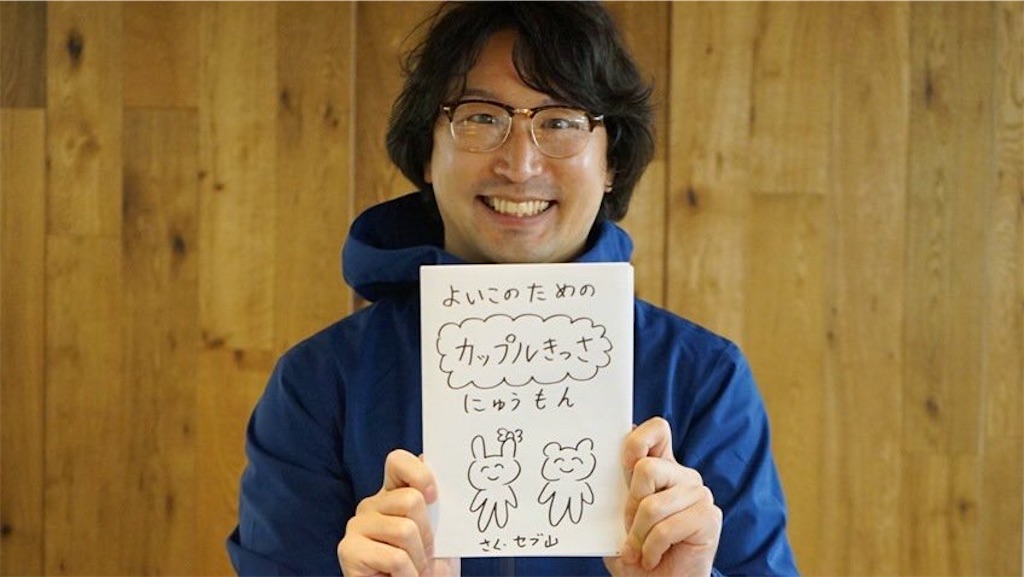 よいこのための
カップルきっさ
にゅうもん
さく・セブ山